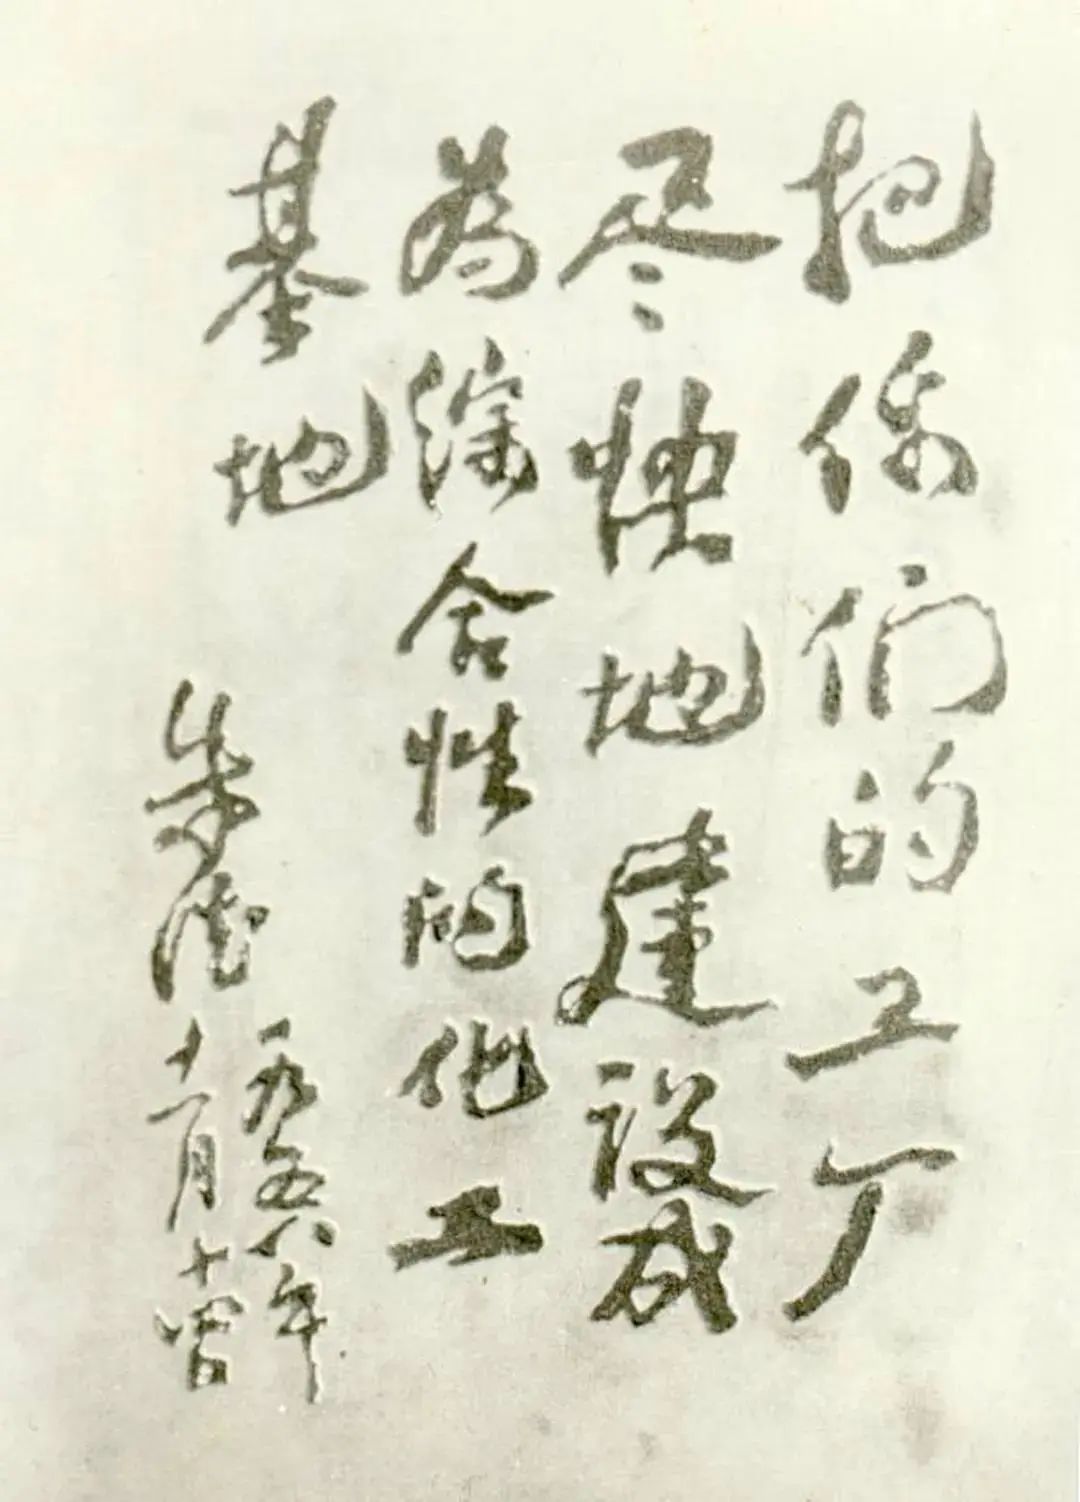 把你们的工厂
尽快地建设成
为综合性的化工
基地
朱德
一九五八年
十一月十四日